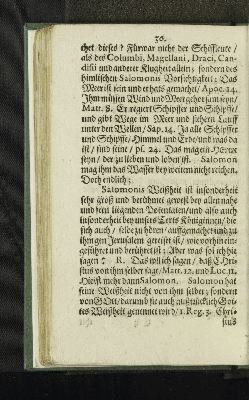 30.
thet dieses? Fürwar nicht der Schiffleute /
als des Columbi, Magellani, Draci, Can-
disii und anderer Klugheit allein; sondern des
himlischen Salomonis Vorsichtigkeit; Das
Meer ist sein und er hats gemachet / Apoc. 14.
Ihm müssen Wind und Meer gehorsam seyn /
Matt. 8. Er regiert Schipffer und Schipffe /
und gibt Wege im Meer und sichern Lauff
unter den Wellen / Sap. 14. Ja alle Schipffer
und Schipffe / Himmel und Erd / und was da
ist / sind seine / ps. 24. Das mögen
seyn / der zu lieben und loben ist. Salomon
mag ihn das Wasser bey weitem nicht reichen.
Doch endlich:
Salomonis Weißheit ist insonderheit
sehr groß und berühmet gewest bey allen nahe
und fern liegenden Potentaten / und also auch
insonderheit bey unsers Texts Königinnen / die
sich auch / selbe zu hören / auffgemachet und zu
ihm gen Jerusalem gereiset ist / wie vorhin ein-
geführet und berühret ist: Aber was sol ich hie
sagen? R. Das wil ich sagen / daß Chri-
stus von ihm selber sagt / Matt. 12. und Luc. 11.
Hie ist mehr dann Salomon. Salomon hat
seine Weißheit nicht von ihm selber; sondern
von GOtt / darumb sie auch außtrücklich Got-
tes Weißheit genennet wird / 1. Reg. 3. Chri-
stus